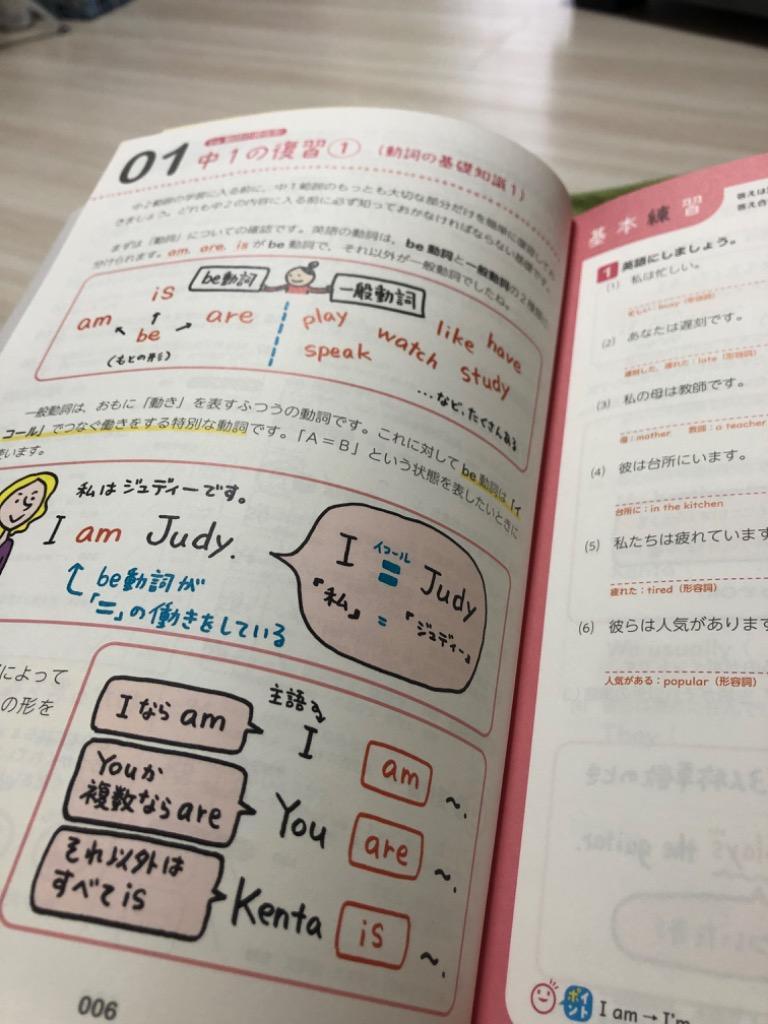 01 中1の復習① (動詞の基礎知識1)
中2範囲の学習に入る前に、中1範囲のもっとも大切な部分だけを簡単に復習してお
きましょう。どれも中2の内容に入る前に必ず知っておかなければならない基礎です。
まずは「動詞」についての確認です。英語の動詞は、be動詞と一般動詞の2種類に
分けられます。am, are, is がbe動詞で、それ以外が一般動詞でしたね。
be動詞
一般動詞
is
am
are
be
(もとの形)
play
like
have
speak
watch
study
…など、たくさんある
一般動詞は、おもに「動き」を表すふつうの動詞です。これに対してbe動詞は、「イ
コール」でつなぐ働きをする特別な動詞です。「A=B」という状態を表したいときに
使います。
私はジュディーです。
I am Judy.
be動詞が
「=」の働きをしている
イコール
I = Judy
「私」 = 「ジュディー」
によって
の形を
主語
Iなら am
I am ~.
Youか
複数なら are
You are ~.
それ以外は
すべて is
Kenta is ~.
006
基本練習
答えは
答え合
1 英語にしましょう。
(1) 私は忙しい。
忙しい:busy(形容詞)
(2) あなたは遅刻です。
遅刻した、遅れた:late(形容詞)
(3) 私の母は教師です。
母:mother 教師:a teacher
(4) 彼は台所にいます。
台所に:in the kitchen
(5) 私たちは疲れています
疲れた:tired(形容詞)
(6) 彼らは人気があります
人気がある:popular(形容詞)
ポイント I am → I'm